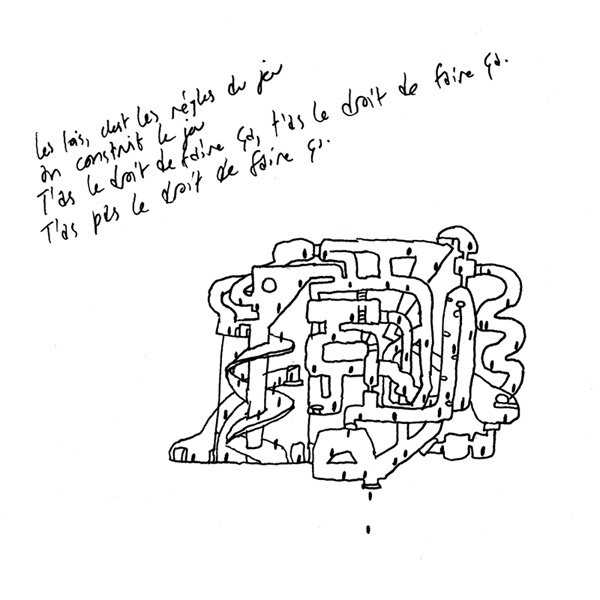 Les lois, c'est les règles du jeu
On construit le jeu
T'as le droit de faire ça, t'as le droit de faire ça.
T'as pas le droit de faire ça.